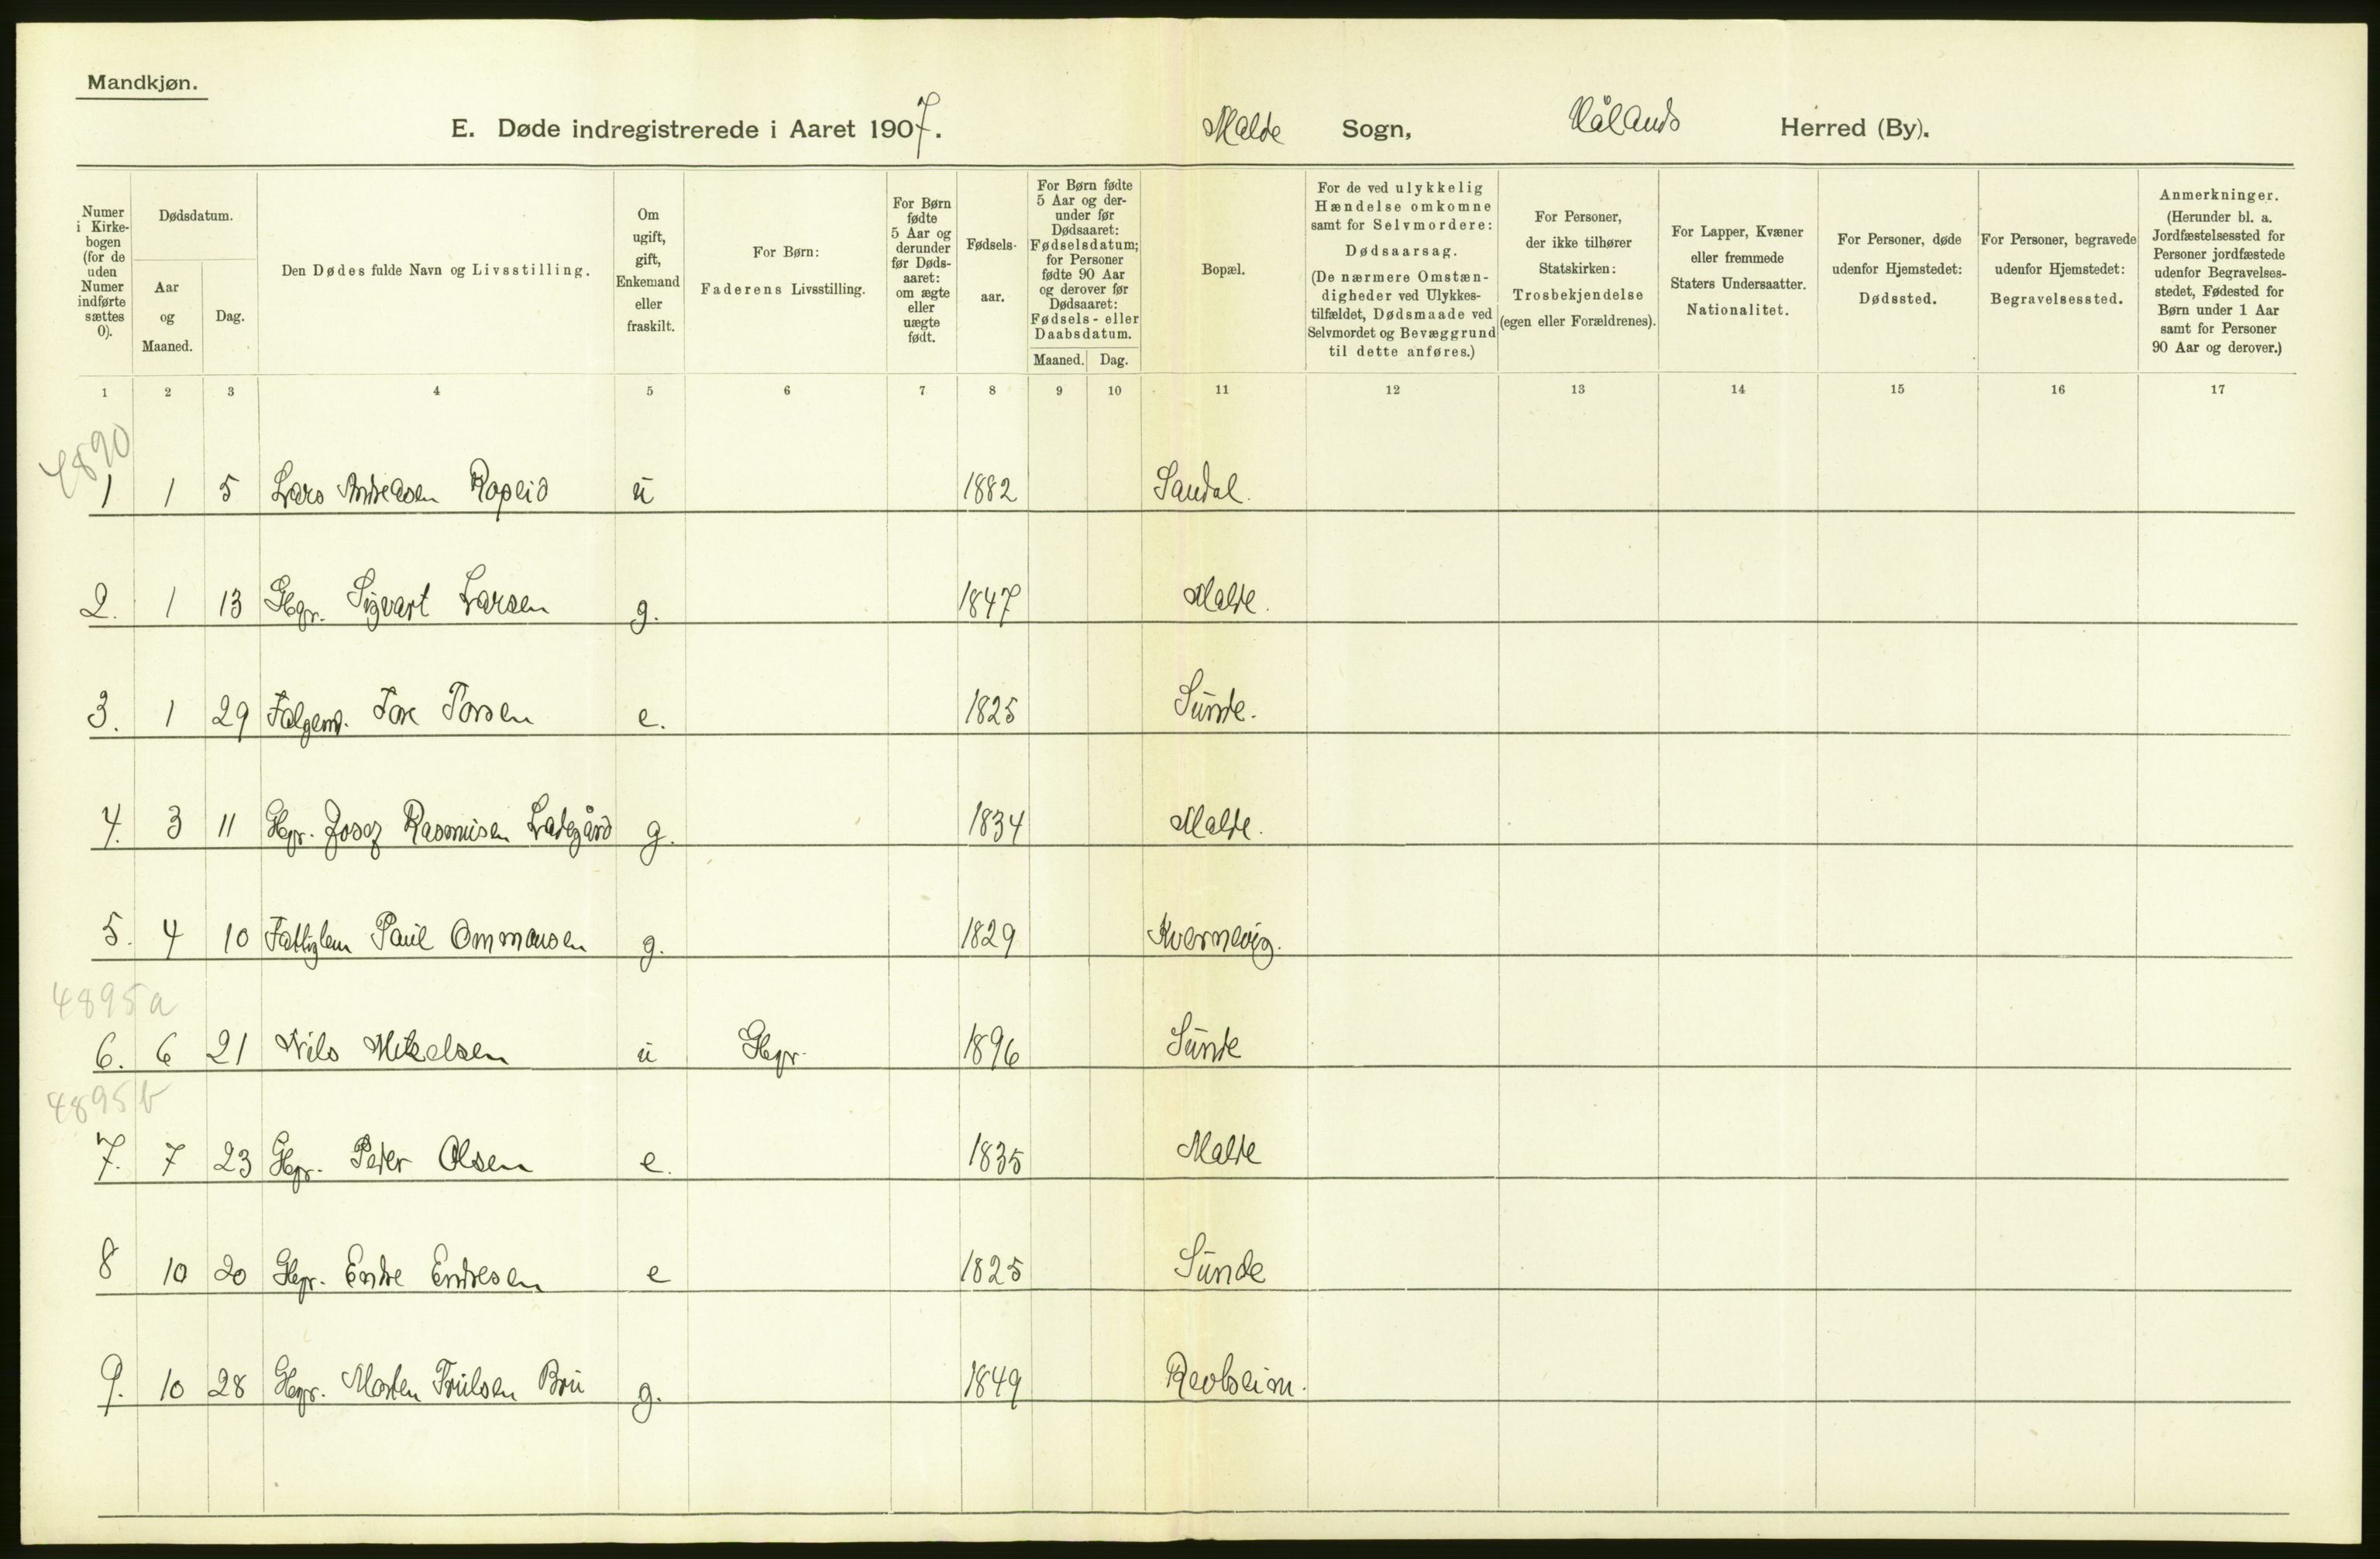 Mandkjøn.
E. Døde indregistrerede i Aaret 1907. Malde Sogn, Hålands Herred (By).
Numer i Kirkebogen (for de uden Numer indførte sættes 0).
Dødsdatum.
Aar og Maaned.
Dag.
Den Dødes fulde Navn og Livsstilling.
Om ugift, gift, Enkemand eller fraskilt.
For Børn: Faderens Livsstilling.
For Børn fødte 5 Aar og derunder før Dødsaaret: om ægte eller uægte født.
Fødselsaar.
For Børn fødte 5 Aar og derunder før Dødsaaret: Fødselsdatum; for Personer fødte 90 Aar og derover før Dødsaaret: Fødsels- eller Daabsdatum.
Maaned. Dag.
Bopæl.
For de ved ulykkelig Hændelse omkomne samt for Selvmordere: Dødsaarsag. (De nærmere Omstændigheder ved Ulykkestilfældet, Dødsmaade ved Selvmordet og Bevæggrund til dette anføres.)
For Personer, der ikke tilhører Statskirken: Trosbekjendelse (egen eller Forældrenes).
For Lapper, Kvæner eller fremmede Staters Undersaatter. Nationalitet.
For Personer, døde udenfor Hjemstedet: Dødssted.
For Personer, begravede udenfor Hjemstedet: Begravelsessted.
Anmerkninger. (Herunder bl. a. Jordfæstelsessted for Personer jordfæstede udenfor Begravelsesstedet, Fødested for Børn under 1 Aar samt for Personer 90 Aar og derover.)
1 2 3 4 5 6 7 8 9 10 11 12 13 14 15 16 17
4890
1 1 5 Lars Andreasen Rapeid u 1882 Sandal.
2. 1 13 Gbr. Sigvart Larsen g. 1847 Malde.
3. 1 29 Folgem. Tore Torsen e. 1825 Sunde.
4. 3 11 Gbr. Josef Rasmusen Ladegård g. 1834 Malde.
5. 4 10 Fattiglem Paul Ommunsen g. 1829 Kvernevig.
4895 a
6. 6 21 Nils Mikelsen u Gbr. 1896 Sunde
4895 b
7. 7 23 Gbr. Peder Olsen e. 1835 Malde
8 10 20 Gbr. Endre Endresen e 1825 Sunde
9. 10 28 Gbr. Morten Trulsen Bru g. 1849 Revheim.